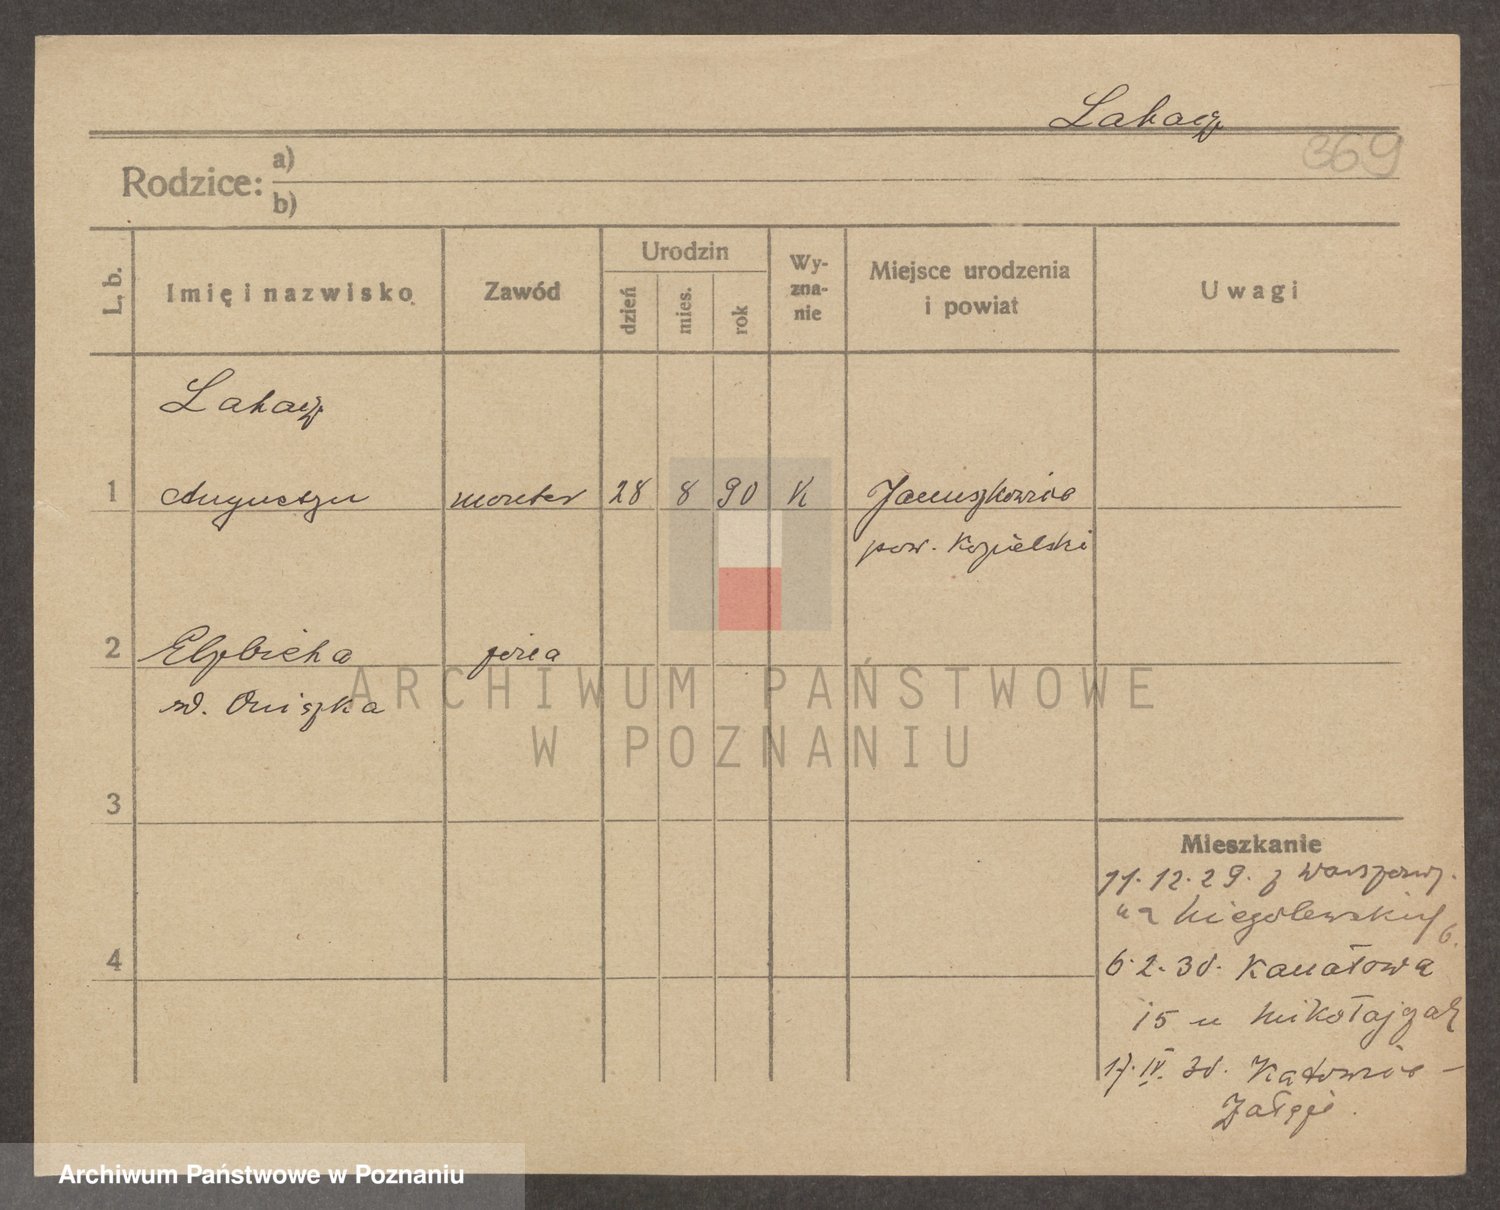 Lakacz
369
Rodzice: a)
b)
L. b.
Imię i nazwisko
Zawód
Urodzin
dzień
mies.
rok
Wy-
zna-
nie
Miejsce urodzenia
i powiat
Uwagi
Lakacz
1 Augustyn monter 28 8 90 K Januszkowice
pow. Kozielski
2 Elżbieta żona
zd. Oniszka
3
4
Mieszkanie
11.12.29. z Warszawy.
na Niegolewskich 6.
6.2.30. Kanałowa
15 u Mikołajczak
17.IV.30. Katowice -
Załęże.
ARCHIWUM PAŃSTWOWE
W POZNANIU
Archiwum Państwowe w Poznaniu